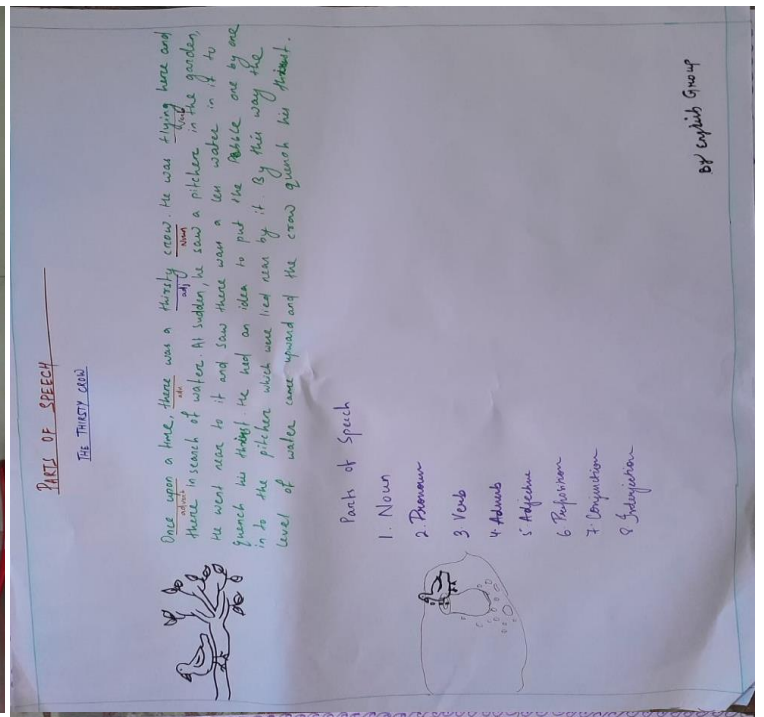 PARTS OF SPEECH
THE THIRSTY CROW
Once upon a time, there was a thirsty crow. He was flying here and
adverb adv adj Noun Verb
there in search of water. At sudden, he saw a pitcher in the garden,
He went near to it and saw there was a less water in it to
quench his thirst. He had an idea to put the Pebble one by one
in to the pitcher which were lied near by it. By this way the
level of water came upward and the crow quench his thirst.
Parts of Speech
1. Noun
2. Pronoun
3 Verb
4. Adverb
5 Adjective
6 Preposition
7. Conjunction
8 Interjection
By English Group